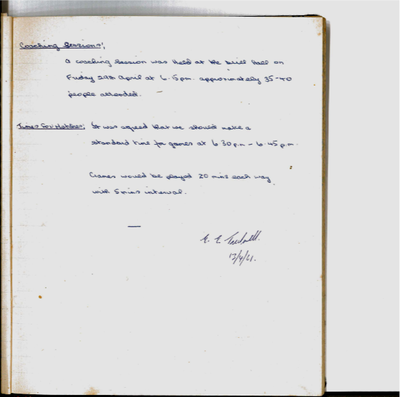 Coaching Session:
A coaching session was held at the Drill Hall on
Friday 29th April at 6.5pm. approximately 35-40
people attended.
Times for Matches: It was agreed that we should make a
standard time for games at 6.30pm - 6.45pm.
Games would be played 20 mins each way
with 5 mins interval.